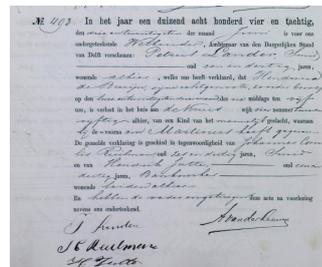 № 493 In het jaar een duizend acht honderd vier en tachtig,
den drie en twintigsten der maand Juni is voor ons
ondergeteekende Wethouder, Ambtenaar van den Burgerlijken Stand
van Delft verschenen: Petrus Linden, Smid
oud een en dertig jaren,
wonende alhier, welke ons heeft verklaard, dat Hendrina
de Bruijn, zijne echtgenoote, zonder beroep
op den twee en twintigsten dezer des na middags ten vijf
ure, is verlost in het huis aan de wijk nummer
vijftig alhier, van een Kind van het mannelijk geslacht, waaraan
hij de voornaam Martinus heeft gegeven
De gemelde verklaring is geschied in tegenwoordigheid van Johannes Corne
lis Roelman oud zes en dertig jaren, Smid
en van Hendrik oud
dertig jaren,
wonende beiden alhier
En hebben de vader en getuigen deze acte na voorlezing
nevens ons onderteekend.
P Linden
J C Roelman
H